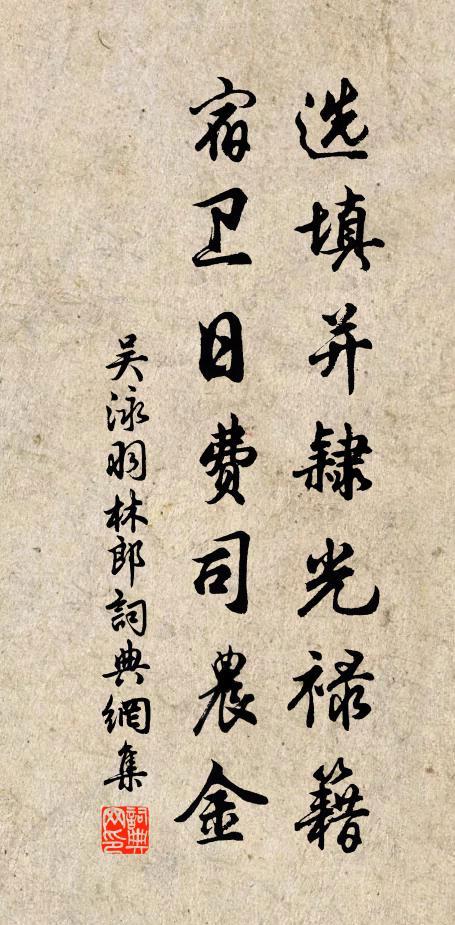 选填并隶光禄籍
宿卫日费司農金
吴泳羽林郎詞典網集
詞典
网印